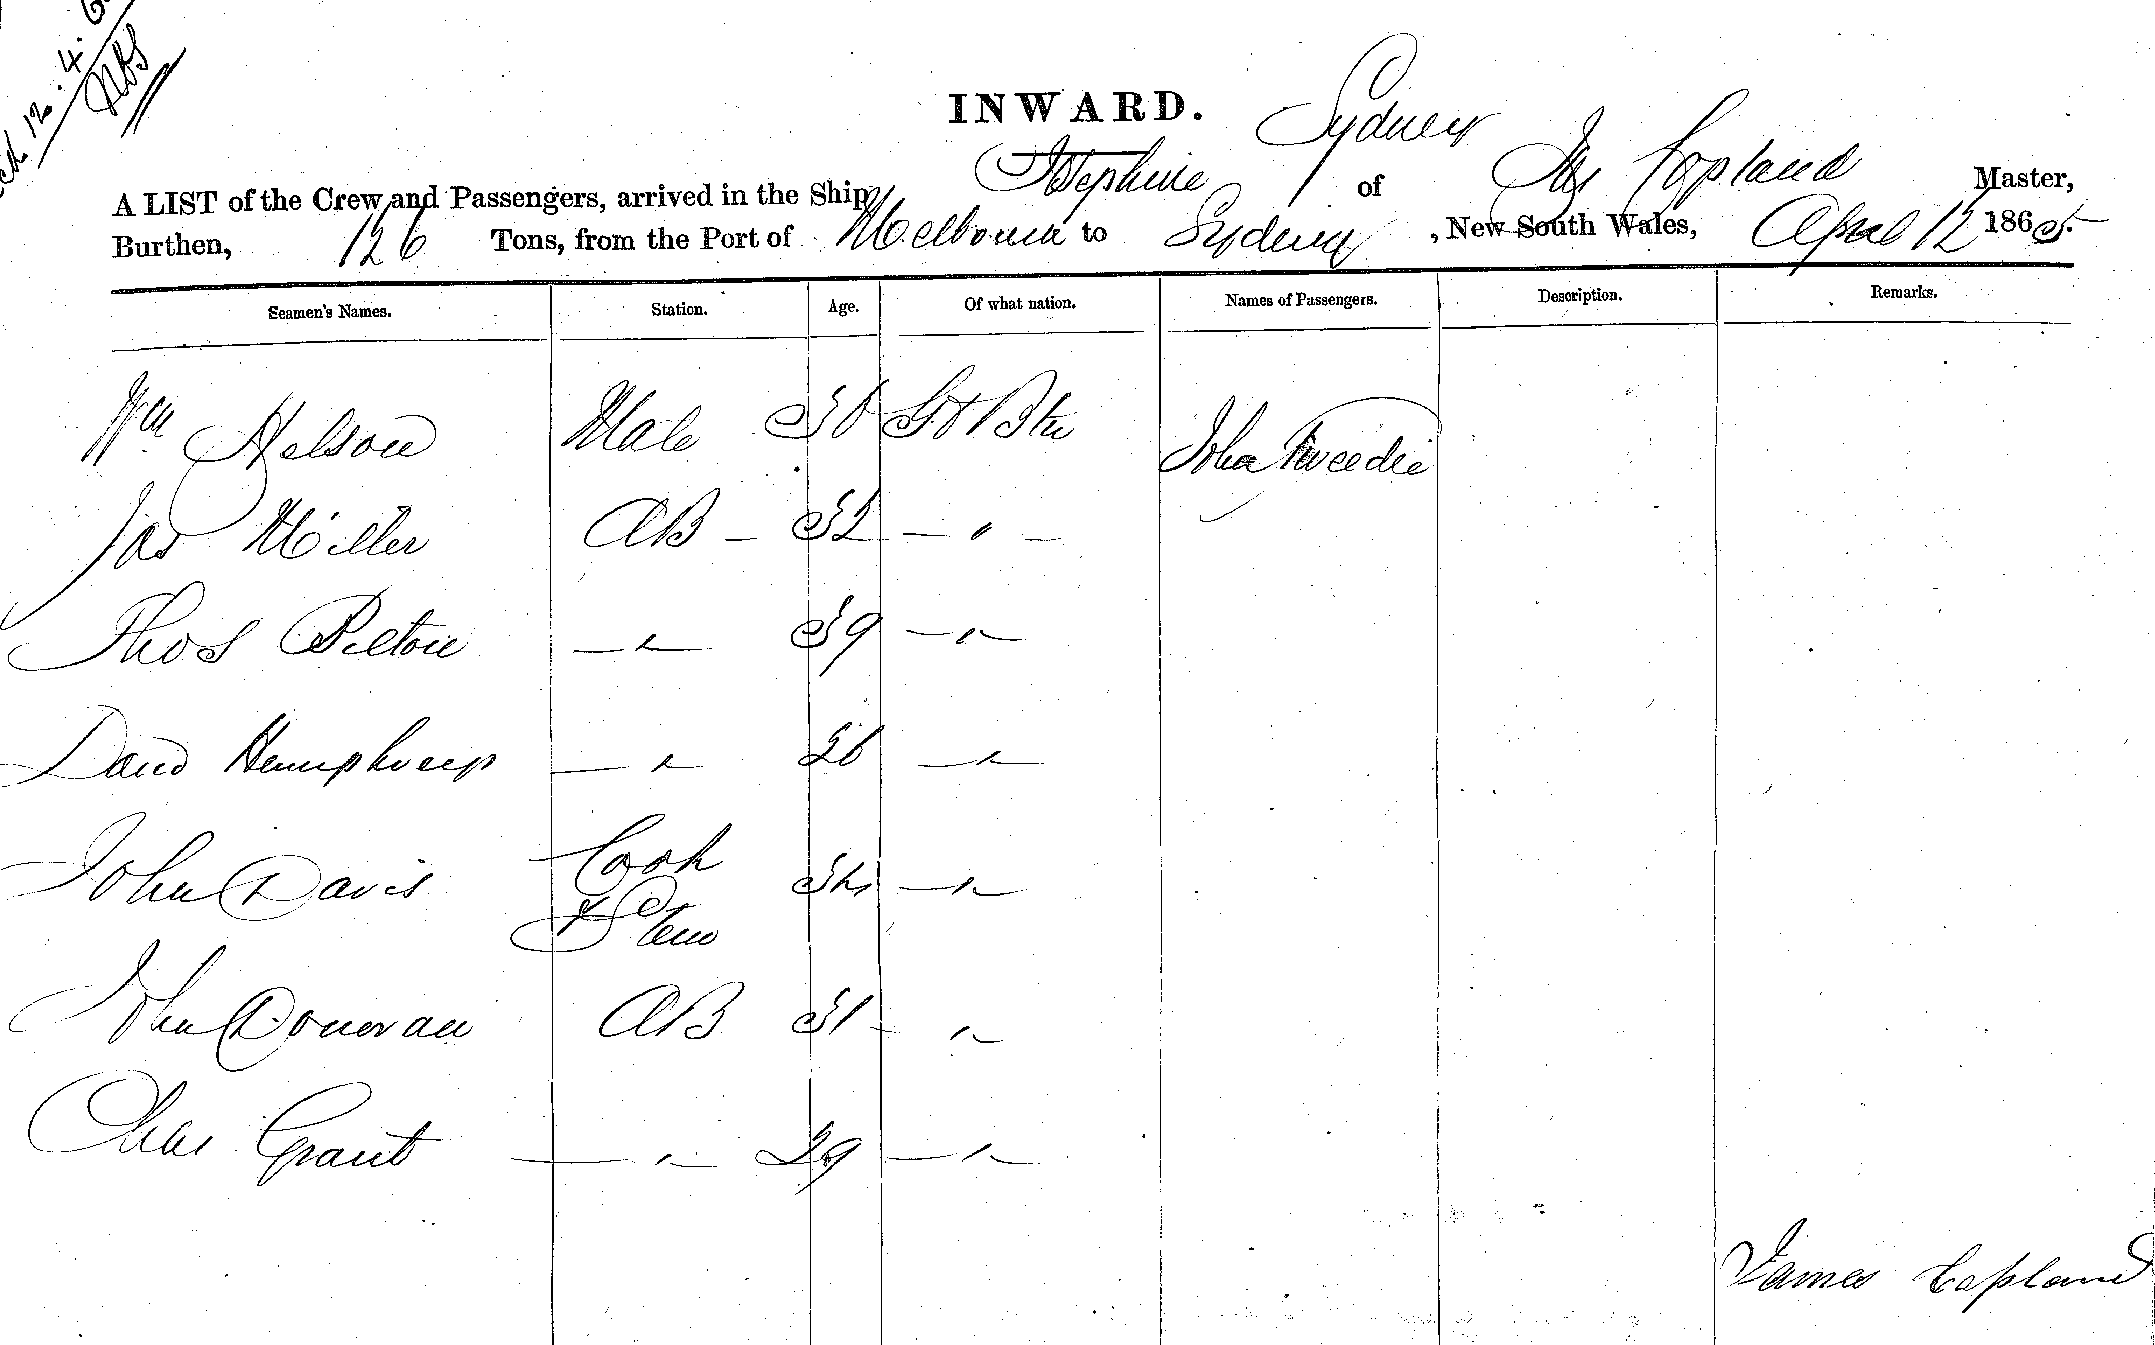 12.4.
INWARD.
A LIST of the Crew and Passengers, arrived in the Ship Josephine of Sydney Jas Copland Master,
Burthen, 126 Tons, from the Port of Melbourne to Sydney, New South Wales, April 12 1865.
Seamen's Names. Station. Age. Of what nation. Names of Passengers. Description. Remarks.
Wm Nelson Mate 36 Gt Btn John Tweedie
Jas Miller AB 32 — " —
Thos Pelton — " — 39 — " —
David Humphreys — " — 26 — " —
John Davis Cook & Stew — " —
John Donovan AB 31 "
Chas Grant — " — 29 — " —
James Copland